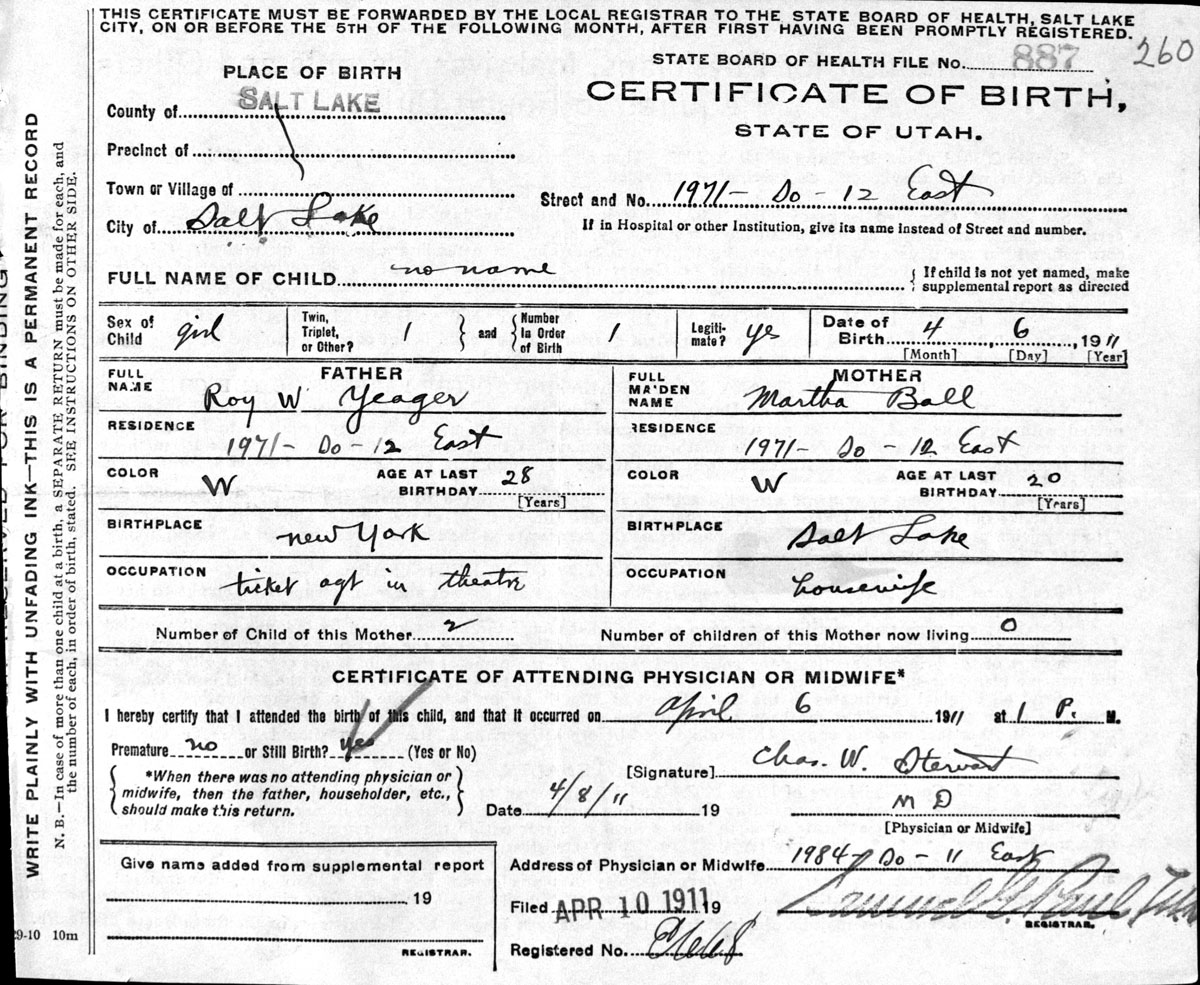 THIS CERTIFICATE MUST BE FORWARDED BY THE LOCAL REGISTRAR TO THE STATE BOARD OF HEALTH, SALT LAKE
CITY, ON OR BEFORE THE 5TH OF THE FOLLOWING MONTH, AFTER FIRST HAVING BEEN PROMPTLY REGISTERED.
260
STATE BOARD OF HEALTH FILE No. 887
CERTIFICATE OF BIRTH,
STATE OF UTAH.
PLACE OF BIRTH
County of SALT LAKE
Precinct of
Town or Village of
City of Salt Lake
Street and No. 1971 - So - 12 East
If in Hospital or other Institution, give its name instead of Street and number.
FULL NAME OF CHILD no name
{ If child is not yet named, make
supplemental report as directed
Sex of Child girl
Twin, Triplet, or Other? 1 } and { Number In Order of Birth 1
Legiti-mate? yes
Date of Birth 4, 6, 1911
[Month] [Day] [Year]
FATHER
FULL NAME Roy W Yeager
RESIDENCE 1971 - So - 12 East
COLOR W AGE AT LAST BIRTHDAY 28 [Years]
BIRTHPLACE new York
OCCUPATION ticket agt in theatre
MOTHER
FULL MAIDEN NAME Martha Ball
RESIDENCE 1971 - So - 12 East
COLOR W AGE AT LAST BIRTHDAY 20 [Years]
BIRTHPLACE Salt Lake
OCCUPATION housewife
Number of Child of this Mother 2 Number of children of this Mother now living 0
CERTIFICATE OF ATTENDING PHYSICIAN OR MIDWIFE*
I hereby certify that I attended the birth of this child, and that it occurred on April 6 1911 at 1 P. M.
Premature no or Still Birth? yes (Yes or No)
{ *When there was no attending physician or
midwife, then the father, householder, etc.,
should make this return. }
[Signature] Chas. W. Stewart
Date 4/8/11 19
M D
[Physician or Midwife]
Give name added from supplemental report
19
REGISTRAR.
Address of Physician or Midwife 1984 - So - 11 East
Filed APR 10 1911 19
Samuel G Paul
REGISTRAR.
Registered No.
WRITE PLAINLY WITH UNFADING INK—THIS IS A PERMANENT RECORD
N. B.—In case of more than one child at a birth, a SEPARATE RETURN must be made for each, and
the number of each, in order of birth, stated. SEE INSTRUCTIONS ON OTHER SIDE.
29-10 10m